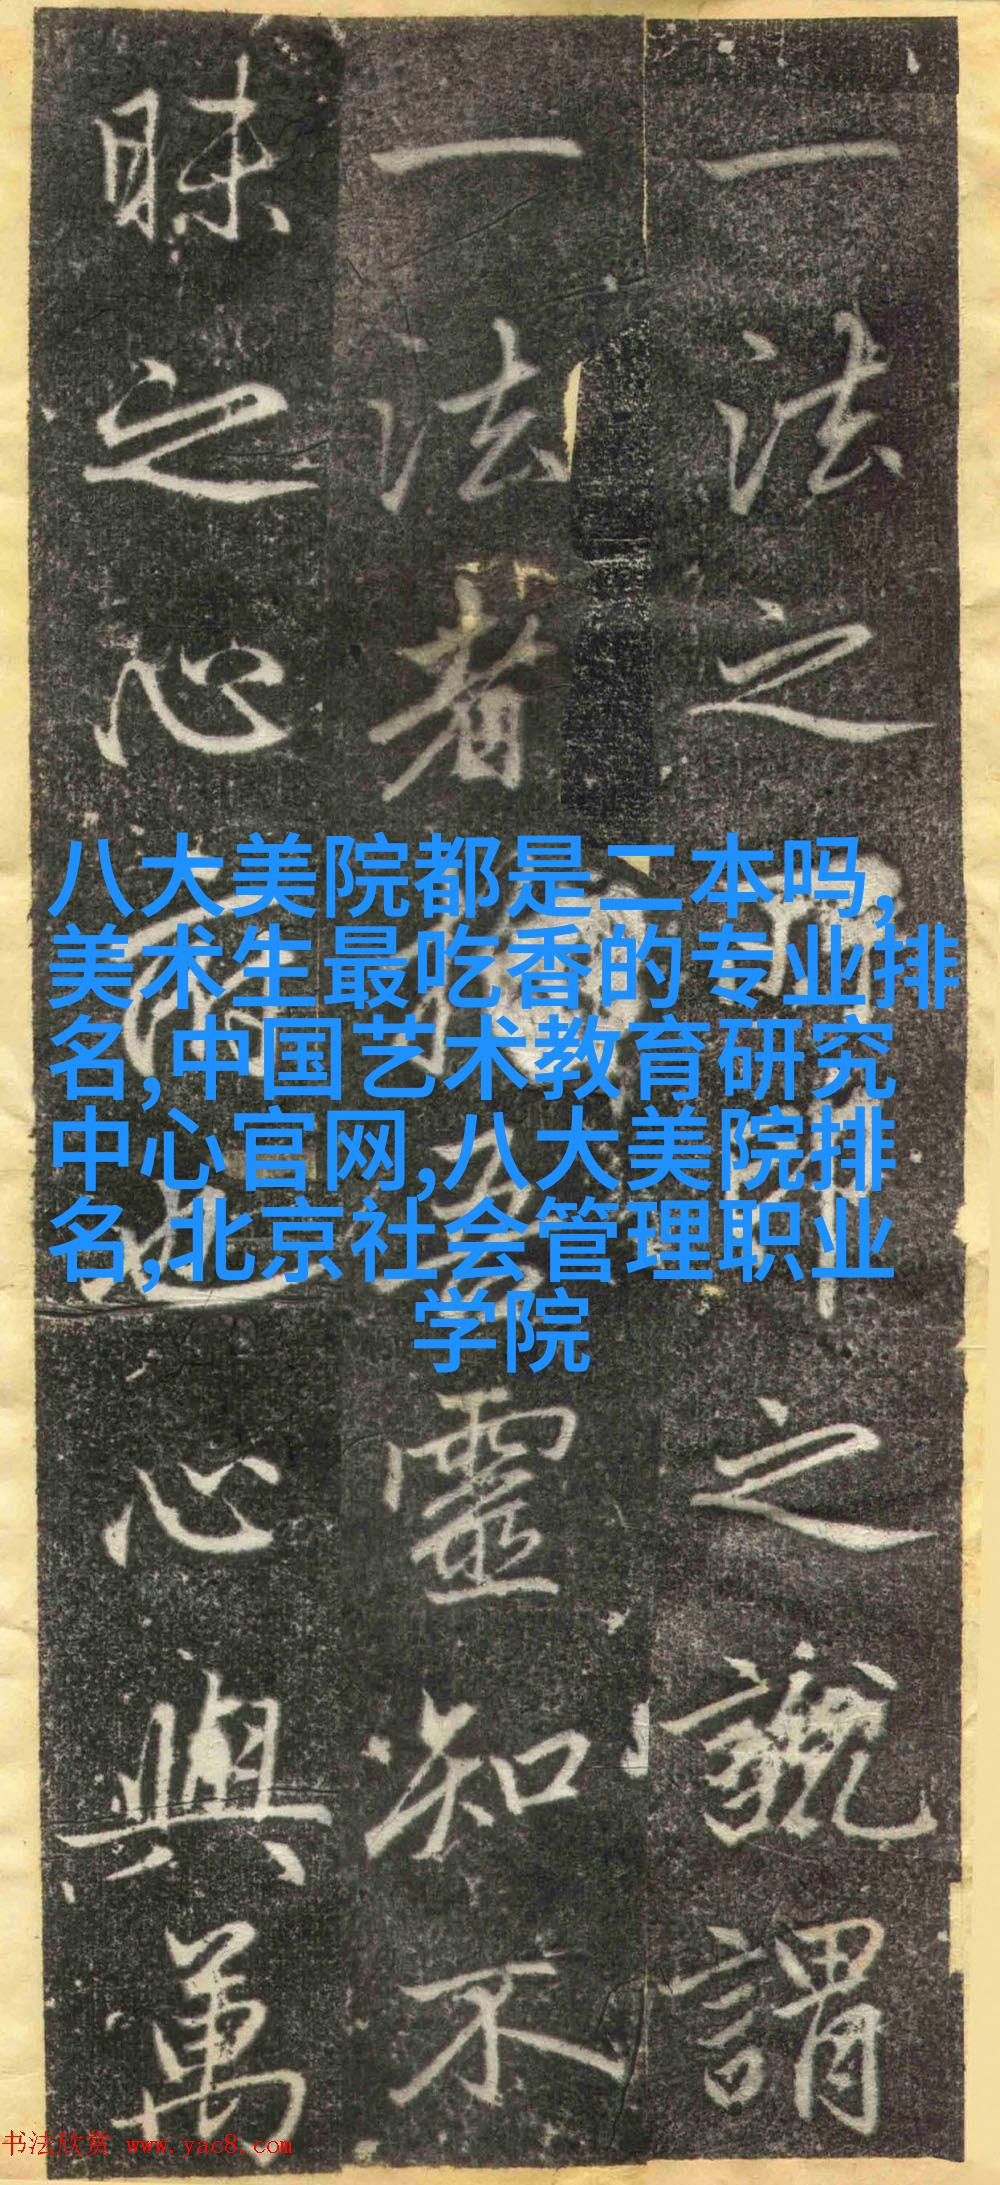 一法之之號謂
一法者靈知不
昧之心也心與萬
八大美院都是二本吗,
美术生最吃香的专业排
名,中国艺术教育研究
中心官网,八大美院排
名,北京社会管理职业
学院
书法欣赏 www.yac8.com